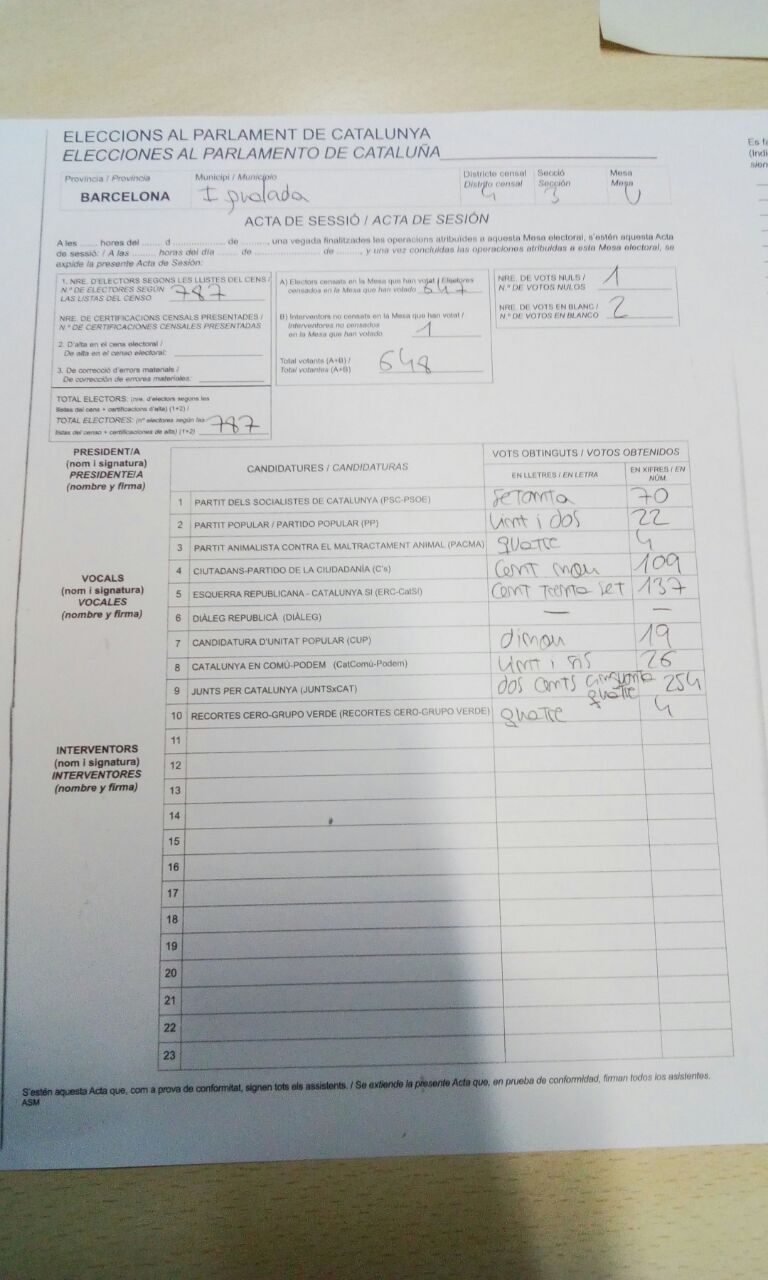 ELECCIONS AL PARLAMENT DE CATALUNYA
ELECCIONES AL PARLAMENTO DE CATALUÑA
Província / Provincia
BARCELONA
Municipi / Municipio
Igualada
Districte censal
Distrito censal
4
Secció
Sección
3
Mesa
Mesa
U
ACTA DE SESSIÓ / ACTA DE SESIÓN
A les ...... hores del ...... d .................... de ........., una vegada finalitzades les operacions atribuïdes a aquesta Mesa electoral, s'estén aquesta Acta
de sessió: / A las ......... horas del día ...... de .................... de ........., y una vez concluidas las operaciones atribuidas a esta Mesa electoral, se
expide la presente Acta de Sesión:
1. NRE. D'ELECTORS SEGONS LES LLISTES DEL CENS /
N.º DE ELECTORES SEGÚN
LAS LISTAS DEL CENSO
787
NRE. DE CERTIFICACIONS CENSALS PRESENTADES /
N.º DE CERTIFICACIONES CENSALES PRESENTADAS
2. D'alta en el cens electoral /
De alta en el censo electoral:
3. De correcció d'errors materials /
De corrección de errores materiales:
TOTAL ELECTORS: (nre. d'electors segons les
llistes del cens + certificacions d'alta) (1+2) /
TOTAL ELECTORES: (nº electores según las
listas del censo + certificaciones de alta) (1+2)
787
A) Electors censats en la Mesa que han votat / Electores
censados en la Mesa que han votado
647
B) Interventors no censats en la Mesa que han votat /
Interventores no censados
en la Mesa que han votado
1
Total votants (A+B) /
Total votantes (A+B)
648
NRE. DE VOTS NULS /
N.º DE VOTOS NULOS
1
NRE. DE VOTS EN BLANC /
N.º DE VOTOS EN BLANCO
2
PRESIDENT/A
(nom i signatura)
PRESIDENTE/A
(nombre y firma)
VOCALS
(nom i signatura)
VOCALES
(nombre y firma)
INTERVENTORS
(nom i signatura)
INTERVENTORES
(nombre y firma)
CANDIDATURES / CANDIDATURAS
VOTS OBTINGUTS / VOTOS OBTENIDOS
EN LLETRES / EN LETRA
EN XIFRES / EN
NÚM.
1 PARTIT DELS SOCIALISTES DE CATALUNYA (PSC-PSOE) setanta 70
2 PARTIT POPULAR / PARTIDO POPULAR (PP) vint i dos 22
3 PARTIT ANIMALISTA CONTRA EL MALTRACTAMENT ANIMAL (PACMA) quatre 4
4 CIUTADANS-PARTIDO DE LA CIUDADANÍA (C's) cent nou 109
5 ESQUERRA REPUBLICANA - CATALUNYA SÍ (ERC-CatSÍ) cent trenta set 137
6 DIÀLEG REPUBLICÀ (DIÀLEG) — —
7 CANDIDATURA D'UNITAT POPULAR (CUP) dinou 19
8 CATALUNYA EN COMÚ-PODEM (CatComú-Podem) vint i sis 26
9 JUNTS PER CATALUNYA (JUNTSxCAT) dos cents cinquanta quatre 254
10 RECORTES CERO-GRUPO VERDE (RECORTES CERO-GRUPO VERDE) quatre 4
11
12
13
14
15
16
17
18
19
20
21
22
23
S'estén aquesta Acta que, com a prova de conformitat, signen tots els assistents. / Se extiende la presente Acta que, en prueba de conformidad, firman todos los asistentes.
ASM